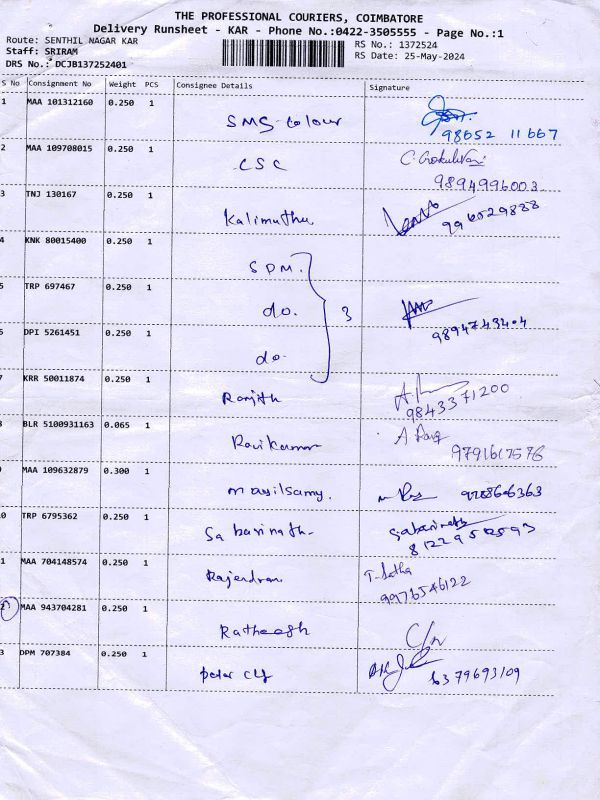 THE PROFESSIONAL COURIERS, COIMBATORE
Delivery Runsheet - KAR - Phone No.:0422-3505555 - Page No.:1
Route: SENTHIL NAGAR KAR
Staff: SRIRAM
DRS No.: DCJB137252401
RS No.: 1372524
RS Date: 25-May-2024
S No Consignment No Weight PCS Consignee Details Signature
1 MAA 101312160 0.250 1
SMS-Colour
98652 11667
2 MAA 109708015 0.250 1
CSC
9894996003
3 TNJ 130167 0.250 1
Kalimuthu
996529888
4 KNK 80015400 0.250 1
SDM.
5 TRP 697467 0.250 1
do. 3
9894743404
6 DPI 5261451 0.250 1
do.
7 KRR 50011874 0.250 1
Ranjith
9843371200
8 BLR 5100931163 0.065 1
Ravikumar
9 MAA 109632879 0.300 1
mayilsamy.
0 TRP 6795362 0.250 1
Sabarinath.
Sabarinath
1 MAA 704148574 0.250 1
Rajendran
9976546122
2 MAA 943704281 0.250 1
Ratheesh
3 DPM 707384 0.250 1
6379693109